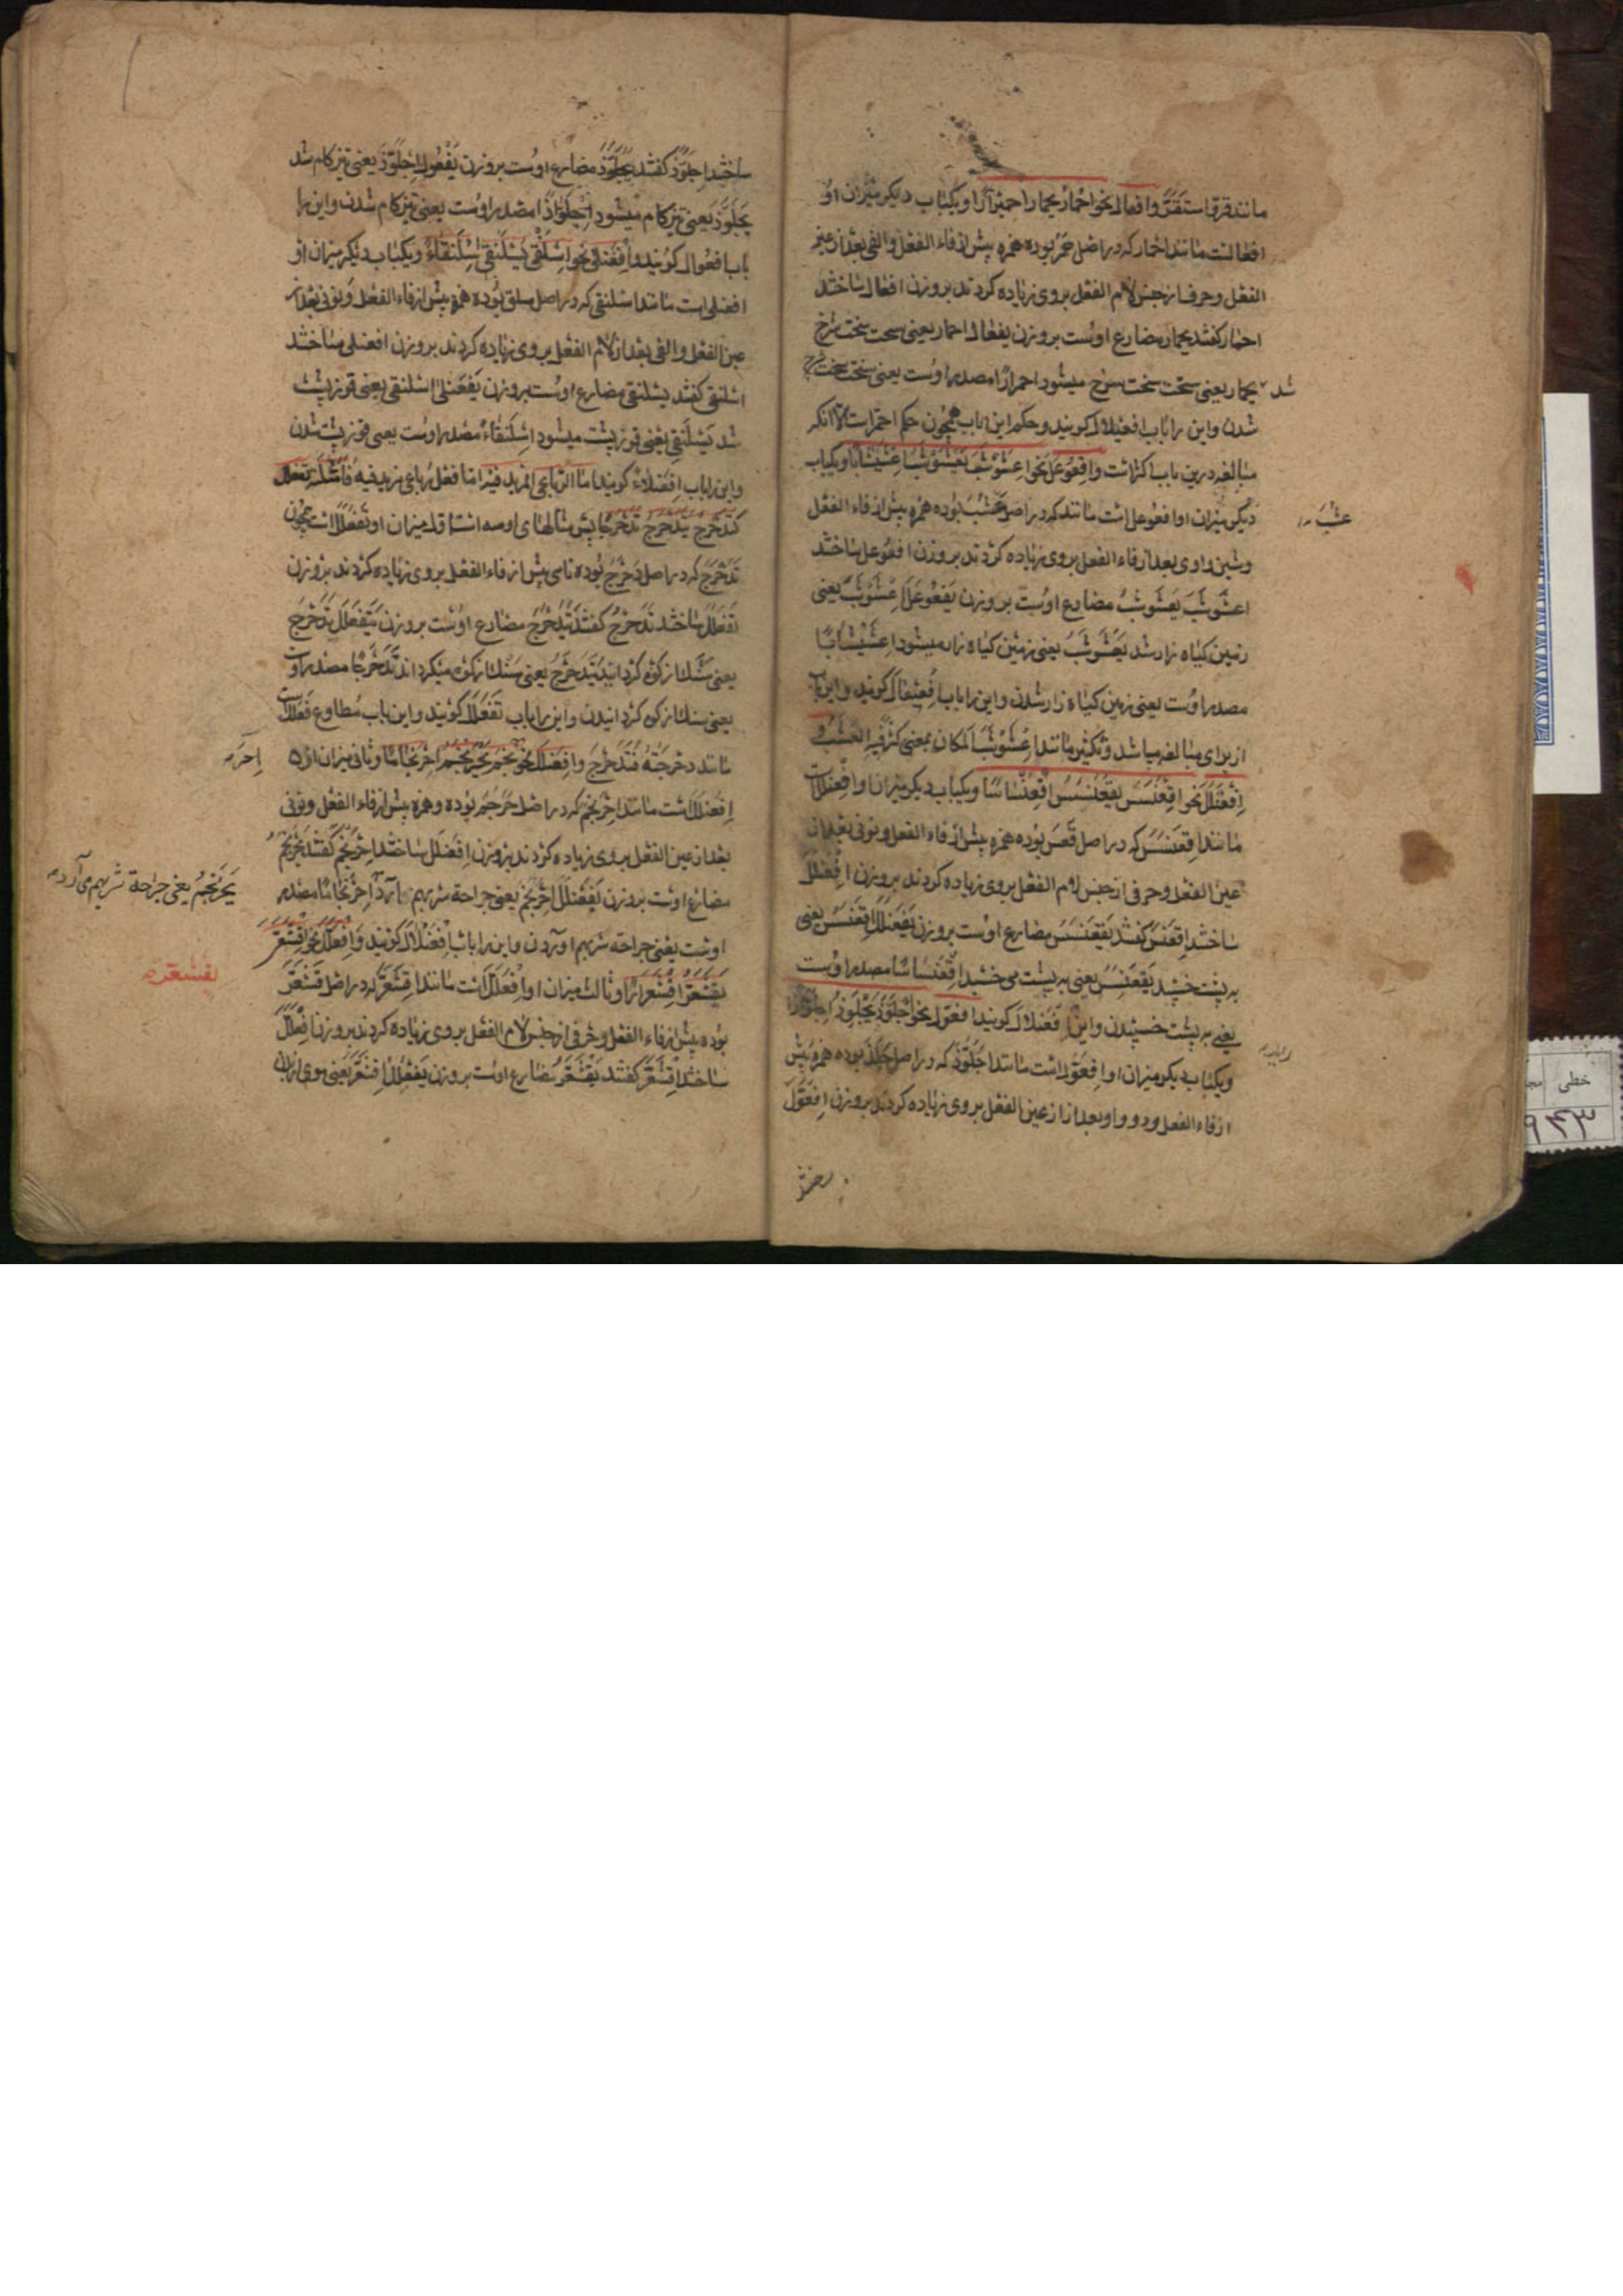 مانند قرّ واستقرّ وافعالّ نحو احمارّ یحمارّ احمیرارًا ویکباب دیکر میزان او
افعالست مانند احمارّ که در اصل حمر بوده همزه پیش از فاء الفعل والفی بعد از عین
الفعل وحرف از جنس لام الفعل بروی زیاده کردند بروزن افعالّ ساختند
احمارّ کفتند یحمارّ مضارع اوست بروزن یفعالّ احمارّ یعنی سخت سخت سرخ
شد یحمارّ یعنی سخت سخت سرخ میشود احمیرارًا مصدر اوست یعنی سخت سخت سرخ
شدن واین را باب افعیلال کویند وحکم این باب همچون حکم احمرّ است الا آنکه
مبالغه درین باب اکثر است وافعوعل نحو اعشوشب یعشوشب اعشیشابا ویکباب
دیکر میزان او افعوعل است مانند که در اصل عشب بوده همزه پیش از فاء الفعل
وشین واوی بعد از فاء الفعل بروی زیاده کردند بروزن افعوعل ساختند
اعشوشب یعشوشب مضارع اوست بروزن یفعوعل اعشوشب یعنی
زمین کیاه زار شد یعشوشب یعنی زمین کیاه زار میشود اعشیشابًا
مصدر اوست یعنی زمین کیاه زار شدن واین را باب افعیعال کویند واین باب
از برای مبالغه میباشد وتکثیر مانند اعشوشب المکان بمعنی کثر فیه العشب و
افعنلل نحو اقعنسس یقعنسس اقعنساسًا ویکباب دیکر میزان او افعنلل است
مانند اقعنسس که در اصل قعس بوده همزه پیش از فاء الفعل ونونی بعد از
عین الفعل وحرفی از جنس لام الفعل بروی زیاده کردند بروزن افعنلل
ساختند اقعنسس کفتند یقعنسس مضارع اوست بروزن یفعنلل اقعنسس یعنی
به پشت خسپید یقعنسس یعنی به پشت می خسپد اقعنساسًا مصدر اوست
یعنی به پشت خسپیدن واین افعنلال کویند افعوّل نحو اجلوّذ یجلوّذ اجلوّاذا
ویکباب دیکر میزان او افعوّل است مانند اجلوّذ که در اصل جلذ بوده همزه پیش
از فاء الفعل ودو واو بعد از از عین الفعل بروی زیاده کردند بروزن افعوّل
عشب
را باب
ساختند اجلوّذ کفتند یجلوّذ مضارع اوست بروزن یفعوّل اجلوّذ یعنی تیز کام شد
یجلوّذ یعنی تیز کام میشود اجلوّاذًا مصدر اوست یعنی تیز کام شدن واین را
باب افعوّال کویند وافعنلی نحو اسلنقی یسلنقی اسلنقاءً ویکباب دیکر میزان او
افعنلی است مانند اسلنقی که در اصل سلق بوده همزه پیش از فاء الفعل ونونی بعد از
عین الفعل والفی بعد از لام الفعل بروی زیاده کردند بروزن افعنلی ساختند
اسلنقی کفتند یسلنقی مضارع اوست بروزن یفعنلی اسلنقی یعنی قوز پشت
شد یسلنقی یعنی قوز پشت میشود اسلنقاءً مصدر اوست یعنی قوز پشت شدن
واین را باب افعنلاء کویند اما الرباعی المزید فیه اما فعل رباعی مزید فیه فامثلته تفعلل
کتدحرج یتدحرج تدحرجا پس مثالهای او سه است اول میزان او تفعلل است همچون
تدحرج که در اصل دحرج بوده تای پیش از فاء الفعل بروی زیاده کردند بروزن
تفعلل ساختند تدحرج کفتند یتدحرج مضارع اوست بروزن یتفعلل تدحرج
یعنی سنک از کوه کردانید یتدحرج یعنی سنک از کوه میکرداند تدحرجا مصدر اوست
یعنی سنک از کوه کردانیدن واین را باب تفعلل کویند واین باب مطاوع فعلل است
مانند دحرجته فتدحرج وافعنلل نحو احرنجم یحرنجم احرنجامًا وثانی میزان او
افعنلل است مانند احرنجم که در اصل حرجم بوده وهمزه پیش از فاء الفعل ونونی
بعد از عین الفعل بروی زیاده کردند بروزن افعنلل ساختند احرنجم کفتند یحرنجم
مضارع اوست بروزن یفعنلل احرنجم یعنی جراحة سر بهم آرد احرنجامًا مصدر
اوست یعنی جراحة سر بهم آوردن واین را باب افعنلال کویند وافعللّ نحو اقشعرّ
یقشعرّ اقشعرارًا وثالث میزان او افعللّ است مانند اقشعرّ که در اصل قشعر
بوده پیش از فاء الفعل وحرفی از جنس لام الفعل بروی زیاده کردند بروزن افعللّ
ساختند اقشعرّ کفتند یقشعرّ مضارع اوست بروزن یفعللّ اقشعرّ یعنی موی از تن
یحرنجم یعنی جراحة سر بهم می آرد
یقشعر
خطی
۹۴۳